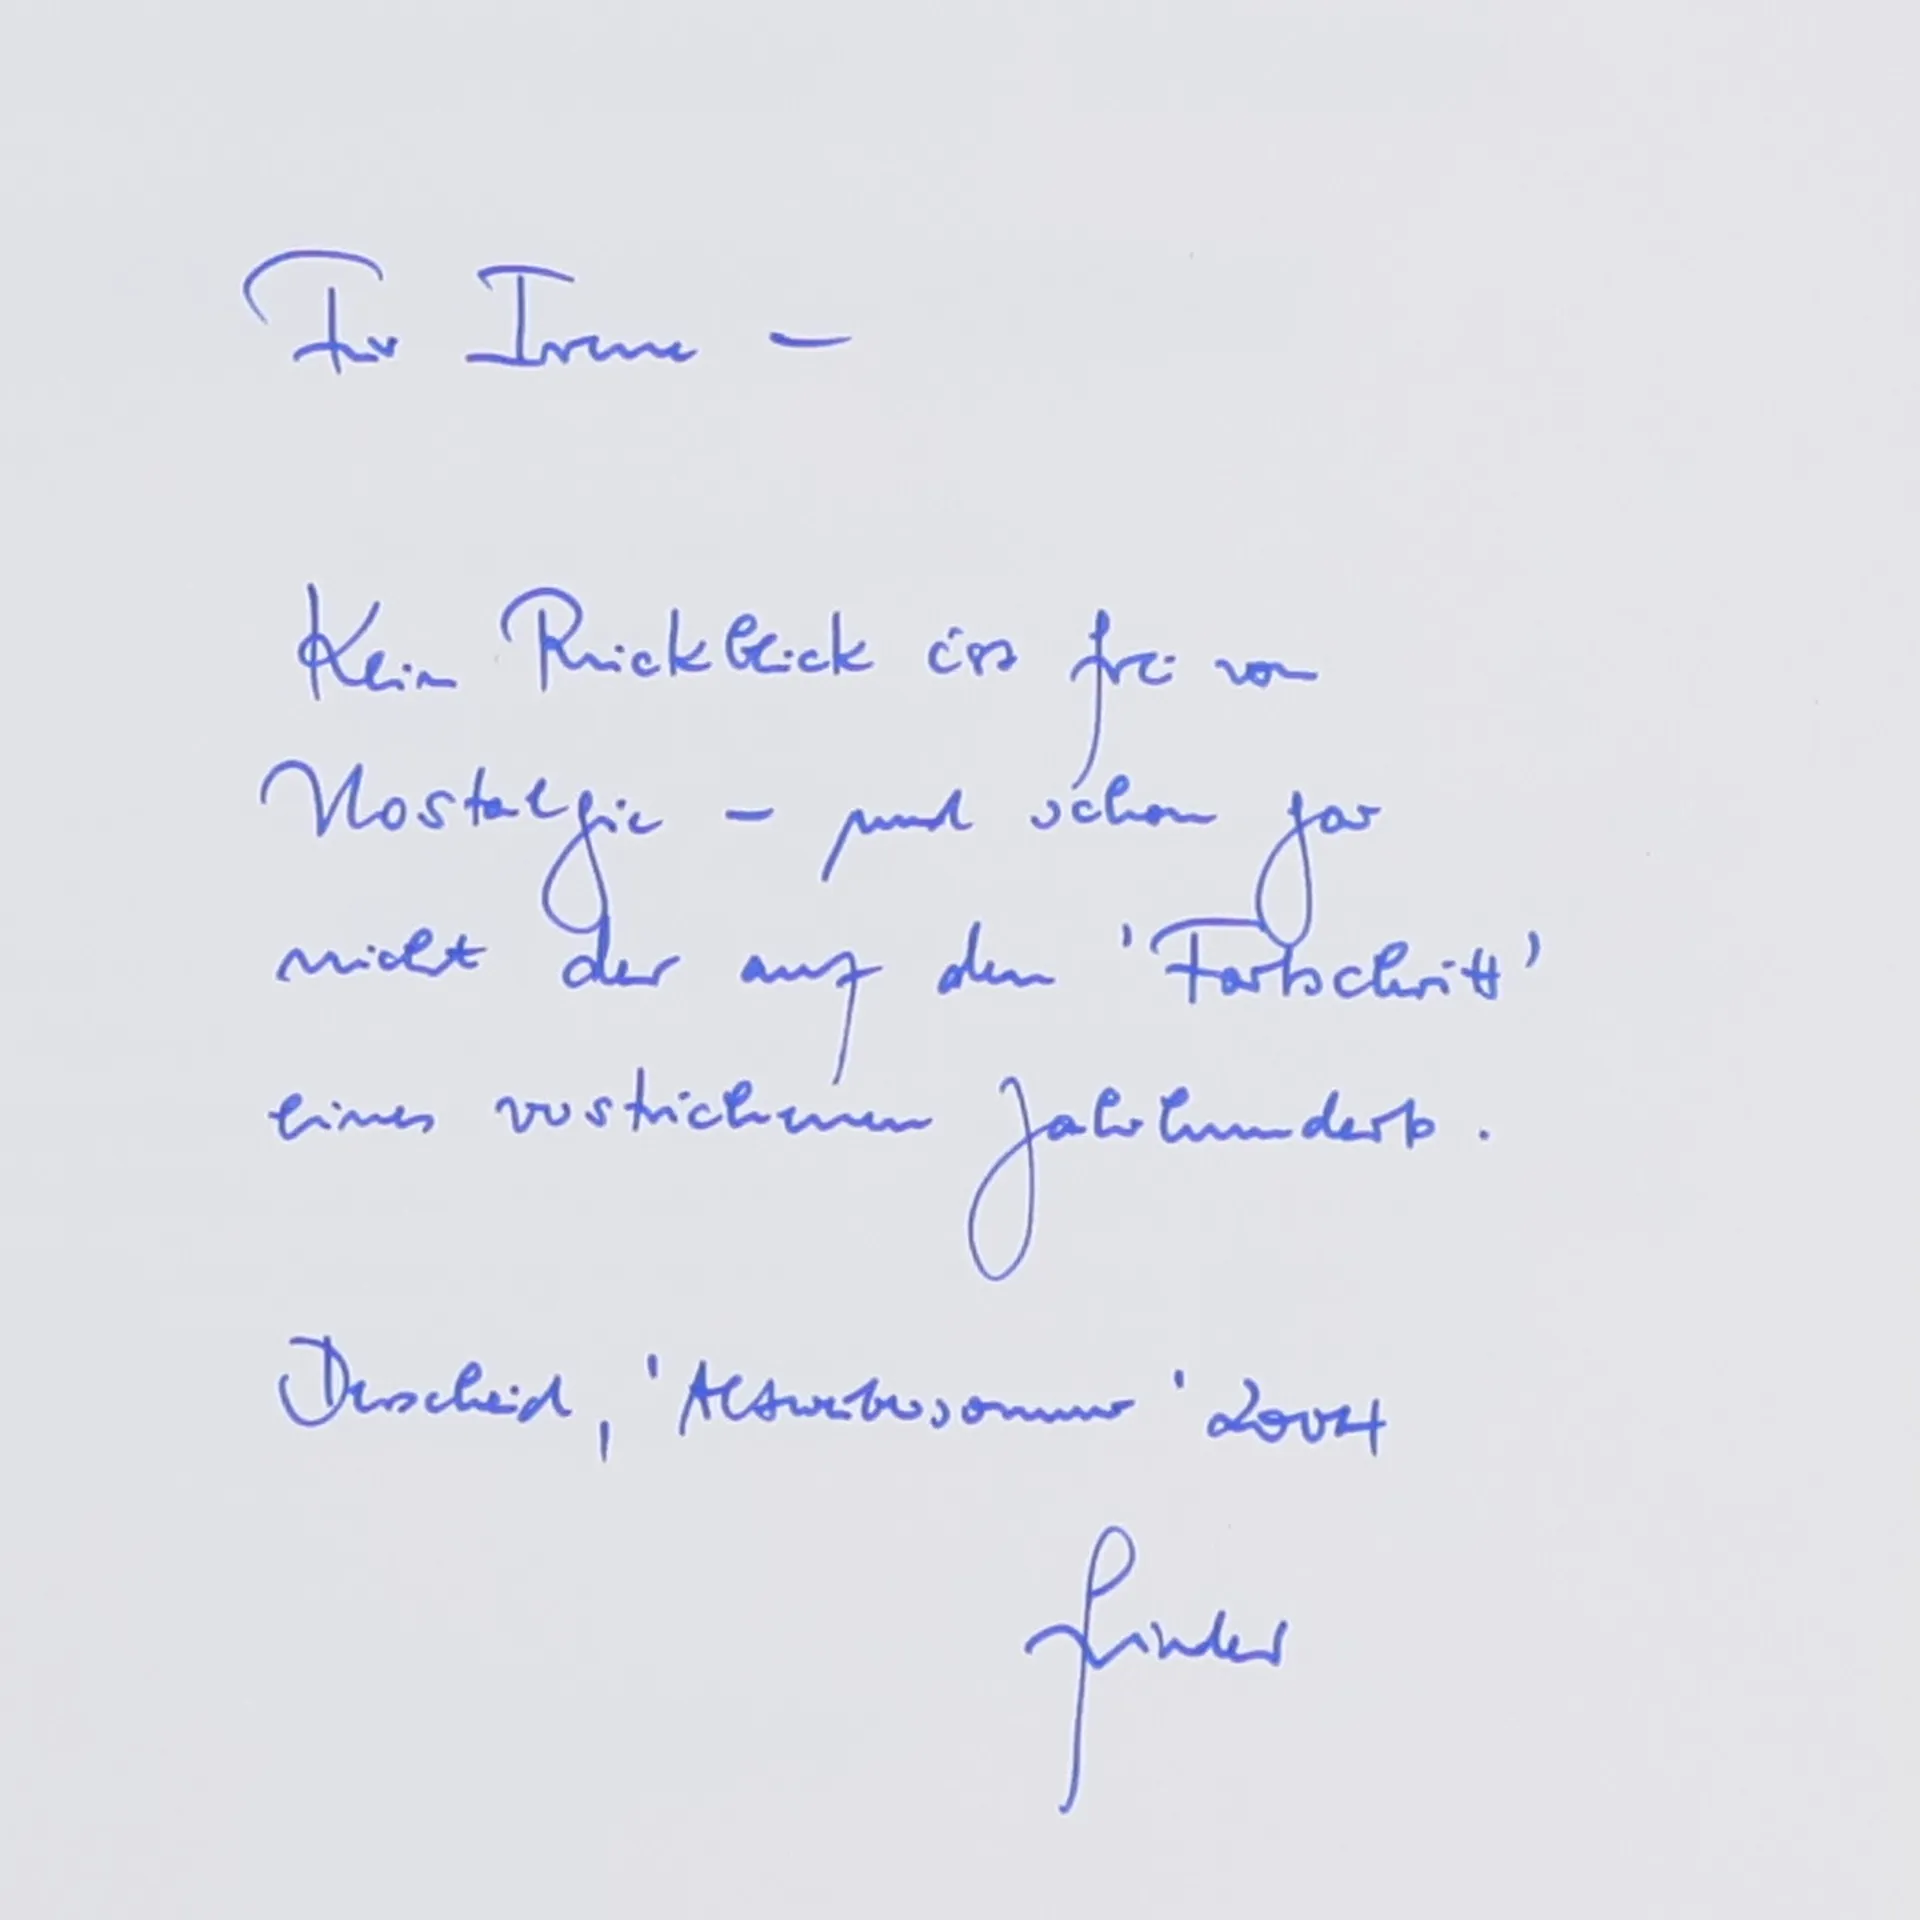 Für Irene –
Kein Rückblick ist frei von
Nostalgie – und schon gar
nicht der auf den 'Fortschritt'
eines verstrichenen Jahrhunderts.
Derscheid, 'Altweibersommer' 2004